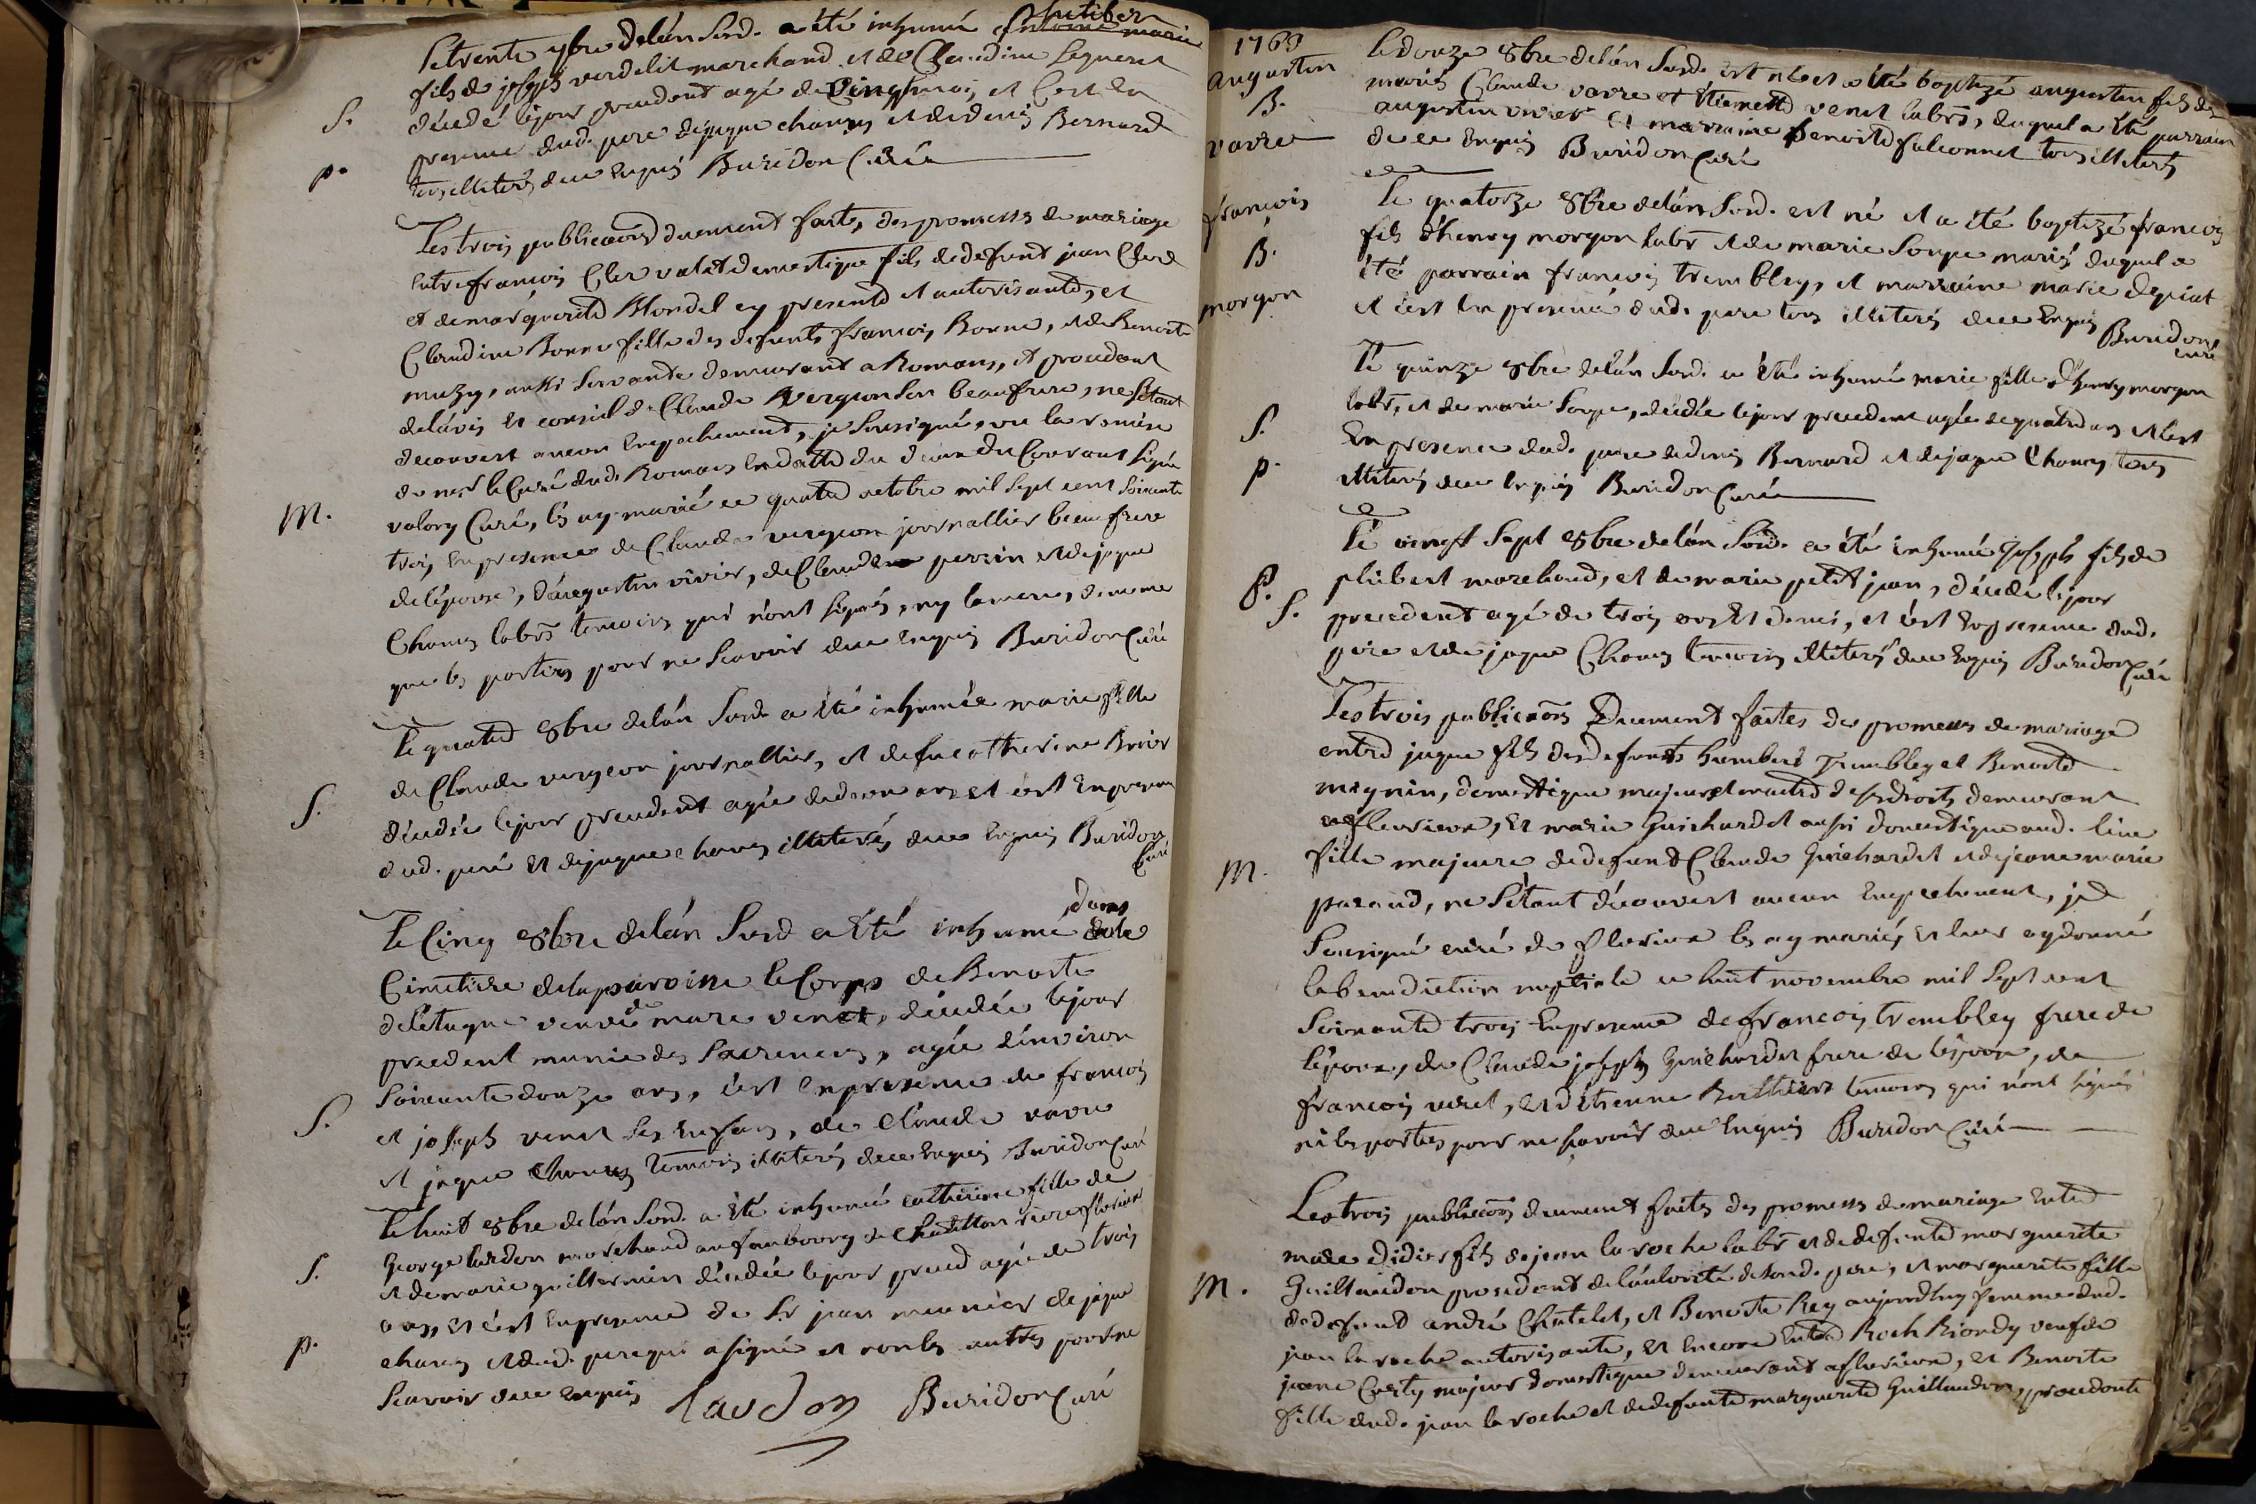 Le trente 7bre de l'án Susd. a été inhumé philiber
Antoine marie
fils de joseph verdelit marchand et de Claudine
décedé le jour precedent agé de Cinq mois et c'est En
S.
presence dud. pere de jaque chanez et de denis Bernard
p.
tous illiterés de ce Enquis Buridon Curé
Les trois publicaons duement faites, des promesses de mariage
Entre françois Clerc valet domestique fils de defunt jean Clerc
et de marguerite Blondel cy presente et autorisante, et
Claudine Bonne fille des defunts françois Bonne, et de Benoite
muzy, aussi Servante demeurant a Romans, et procedant
de l'ávis et conseil de Claude Vergeon Son beaufrere, ne S'étant
decouvert aucun Empechement, je Soussigné, vue la remise
de mesr le Curé dud. Romans En datte du deux du Courant Signée
valory Curé, les ay mariés ce quatre octobre mil Sept cent Soixante
M.
trois, En presence de Claude vergeon journallier beau frere
de l'épouse, d'augustin vivier, de Claude perrin et de jaque
Chanez labrs temoins qui n'ont Signés, ny la mere, de meme
que les parties pour ne Scavoir de ce Enquis Buridon Curé
Le quatre 8bre de l'án Susd. a été inhumée marie fille
de Claude vergeon journallier, et de fue catherine Brevir
S.
décedée le jour precedent agée de deux ans et c'est En presence
dud. peré et de jaque chanez illiterés de ce Enquis Buridon
Curé
Le Cinq 8bre de l'án Susd a Eté inhumé dans le
Cimetiere de la paroisse le Corps de Benoite
de l'étague veuve de marc venet, décedée le jour
precedent munie des Sacremens, agée d'environ
Soixante douze ans, c'est En presence de françois
S.
et joseph venet Ses Enfans, de Claude vavre
et jaque Chanez temoins illiterés de ce Enquis Buridon Curé
Le huit 8bre de l'án Susd. a été inhumée catherine fille de
George lardon marchand au fauxbourg de Chatillon riere fleurieux
S.
et de marie guillermin décedée le jour preced agée de trois
ans, et c'est En presence de Sr jean meunier de jaque
p.
chanez et dud. pere qui a signé et non les autres pour ne
Scavoir de ce Enquis Lardon Buridon Curé
1763
augustin
B.
vavre
Le douze 8bre de l'án Susd. est né et a été baptizé augustin fils de
mariés Claude vavre et Etiennette venet labrs, duquel a été parrain
augustin vivier et marraine Benoite falconnet tous illiterés
de ce Enquis Buridon Curé
françois
B.
morgon
Le quatorze 8bre de l'án Susd. est né et a été baptizé françois
fils d'henry morgon labr et de marie Soupe mariés duquel a
été parrain françois trembley, et marraine marie depiat
et c'est En presence dud. pere tous illiterés de ce Enquis Buridon
curé
Le quinze 8bre de l'án Susd. a été inhumé marie fille d'henry morgon
labr, et de marie Soupe, décedée le jour precedent agée de quatre ans et c'est
S.
En presence dud. pere de denis Bernard et de jaque Chanez tous
p.
illiterés de ce Enquis Buridon Curé
Le vingt Sept 8bre de l'án Susd. a été inhumé joseph fils de
philibert marchand, et de marie petit jean, décedé le jour
p.
S.
precedent agé de trois ans Et demi, et c'est En presence dud.
pere et de jaque Chanez temoins illiterés de ce Enquis Buridon Curé
Les trois publicaons Duement faites des promesses de mariage
entre jaque fils des defunts humbert Trembley et Benoite
magnin, domestique majeur et maitre de ses droits demeurant
a fleurieux, et marie Guichardet aussi domestique aud. lieu
fille majeure de defunt Claude Guichardet et de jeane marie
M.
paraud, ne S'étant découvert aucun Empechement, je
Soussigné curé de fleurieux les ay mariés, et leur ay donné
la benediction nuptiale ce huit novembre mil Sept cent
Soixante trois En presence de françois trembley frere de
l'époux, de Claude joseph Guichardet frere de l'épouse, de
françois venet, et d'etienne Berthier temoins qui n'ont signés
ni les parties pour ne scavoir de ce Enquis Buridon Curé
Les trois publicaons duement faites des promesses de mariage Entre
marc Didier fils de jean la roche labr et de defunte marguerite
M.
Guillaudon procedant de l'autorité de sond. pere, et marguerite fille
de defunt andré Chatelet, et Benoite Rey aujourdhuy femme dud.
jean la roche autorisante, et Encore Entre Roch Riondy veuf de
jeane Curty majeur domestique demeurant a fleurieux, et Benoite
fille dud. jean la roche et de defunte marguerite Guillaudon, procedante